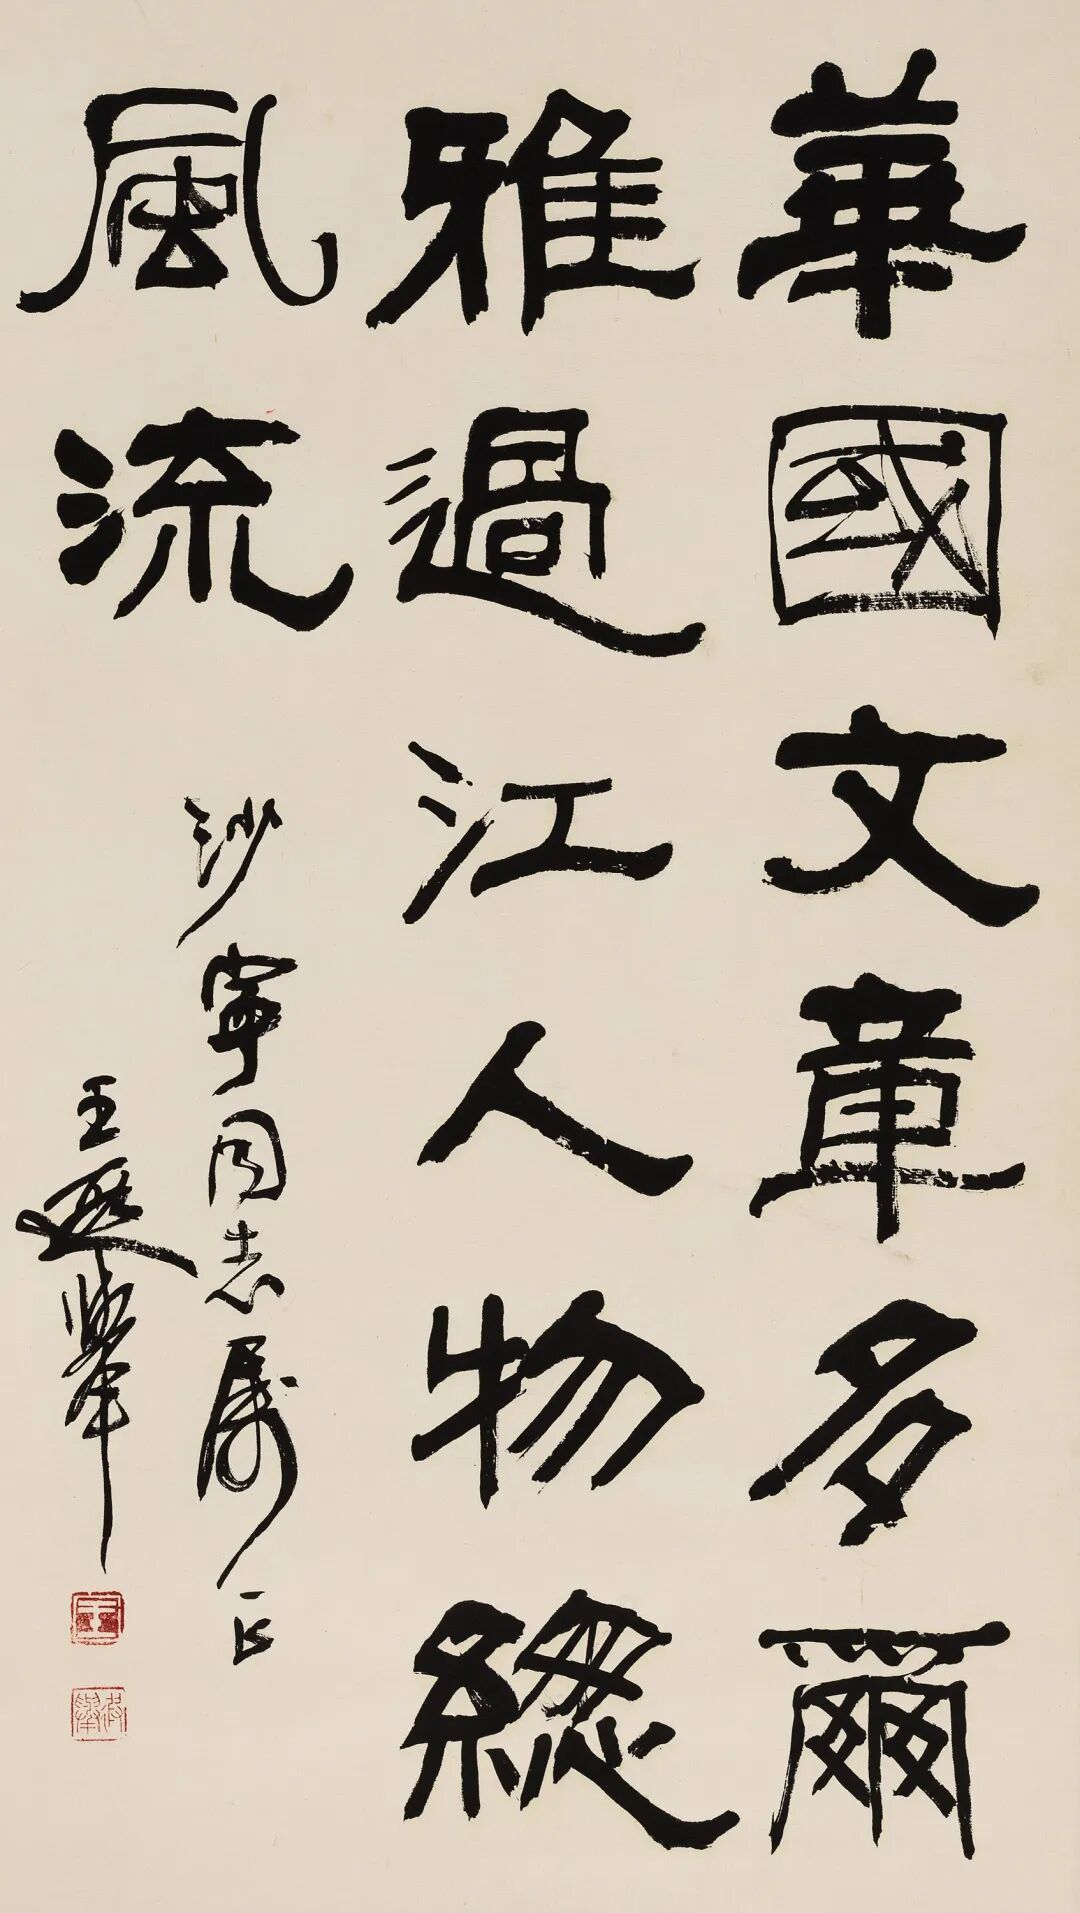 華國文章多爾
雅過江人物總
風流
沙寧同志屬正
王遐舉